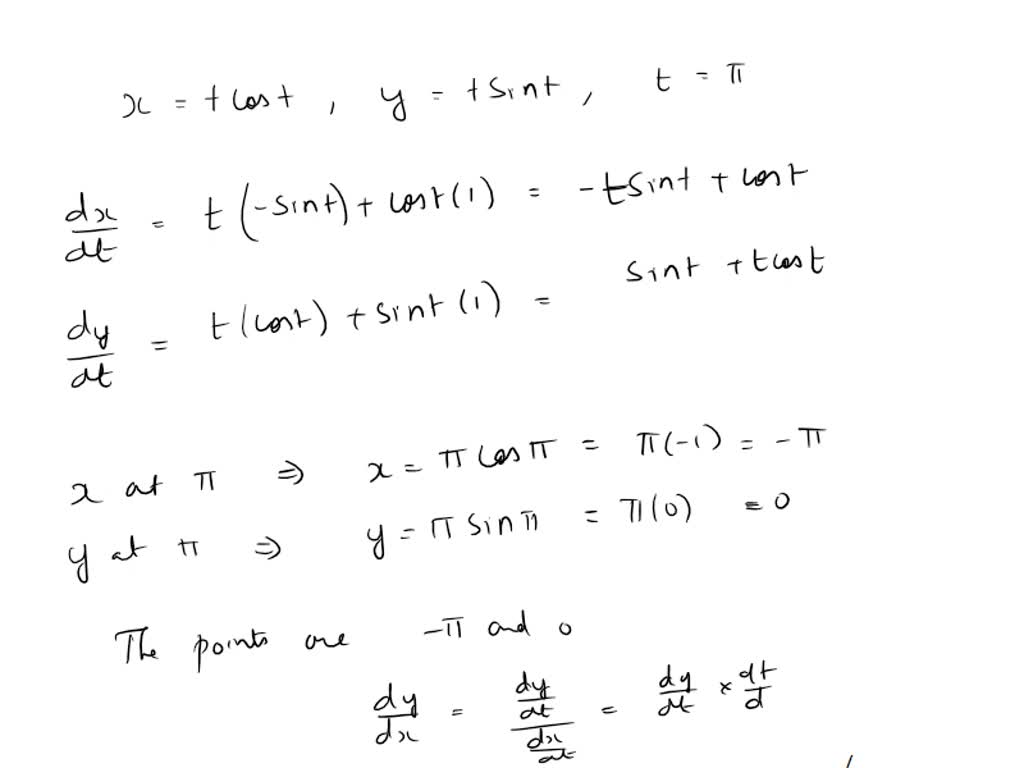 x = t cost , y = t sint , t = π
dx/dt = t (-sint) + cost (1) = -tsint + cost
dy/dt = t (cost) + sint (1) = sint + tcost
x at π ⇒ x = π cos π = π(-1) = -π
y at π ⇒ y = π sin π = π(0) = 0
The points are -π and 0
dy/dx = (dy/dt)/(dx/dt) = dy/dt × dt/d